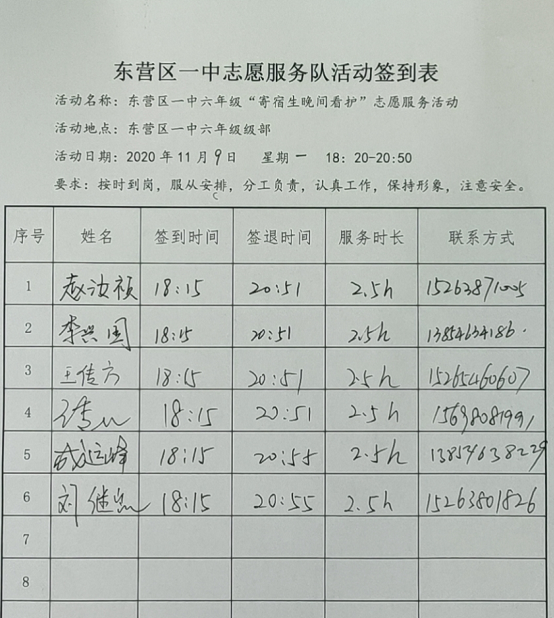 东营区一中志愿服务队活动签到表
活动名称：东营区一中六年级“寄宿生晚间看护”志愿服务活动
活动地点：东营区一中六年级级部
活动日期：2020 年 11 月 9 日 星期 一 18：20-20:50
要求：按时到岗，服从安排，分工负责，认真工作，保持形象，注意安全。
序号 姓名 签到时间 签退时间 服务时长 联系方式
1 赵汝祯 18:15 20:51 2.5h 15263871005
2 李兴国 18:15 20:51 2.5h 13854634186
3 王传方 18:15 20:51 2.5h 15265460607
4 18:15 20:51 2.5h 15698081991
5 18:15 20:55 2.5h 13854638229
6 刘继忠 18:15 20:55 2.5h 15263801826
7
8